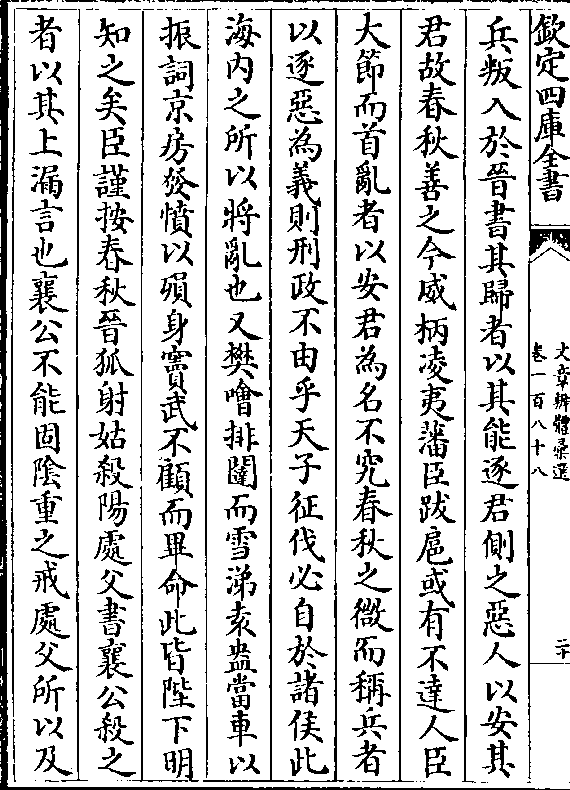 欽定四庫全書
文章辨體彙選
卷一百八十八
二十
兵叛入於晉書其歸者以其能逐君側之惡人以安其
君故春秋善之今威柄凌夷藩臣跋扈或有不達人臣
大節而首亂者以安君為名不究春秋之微而稱兵者
以逐惡為義則刑政不由乎天子征伐必自於諸侯此
海内之所以將亂也又樊噲排闥而雪涕袁盎當車以
振詞京房發憤以殞身竇武不顧而畢命此皆陛下明
知之矣臣謹按春秋晉狐射姑殺陽處父書襄公殺之
者以其上漏言也襄公不能固陰重之戒處父所以及